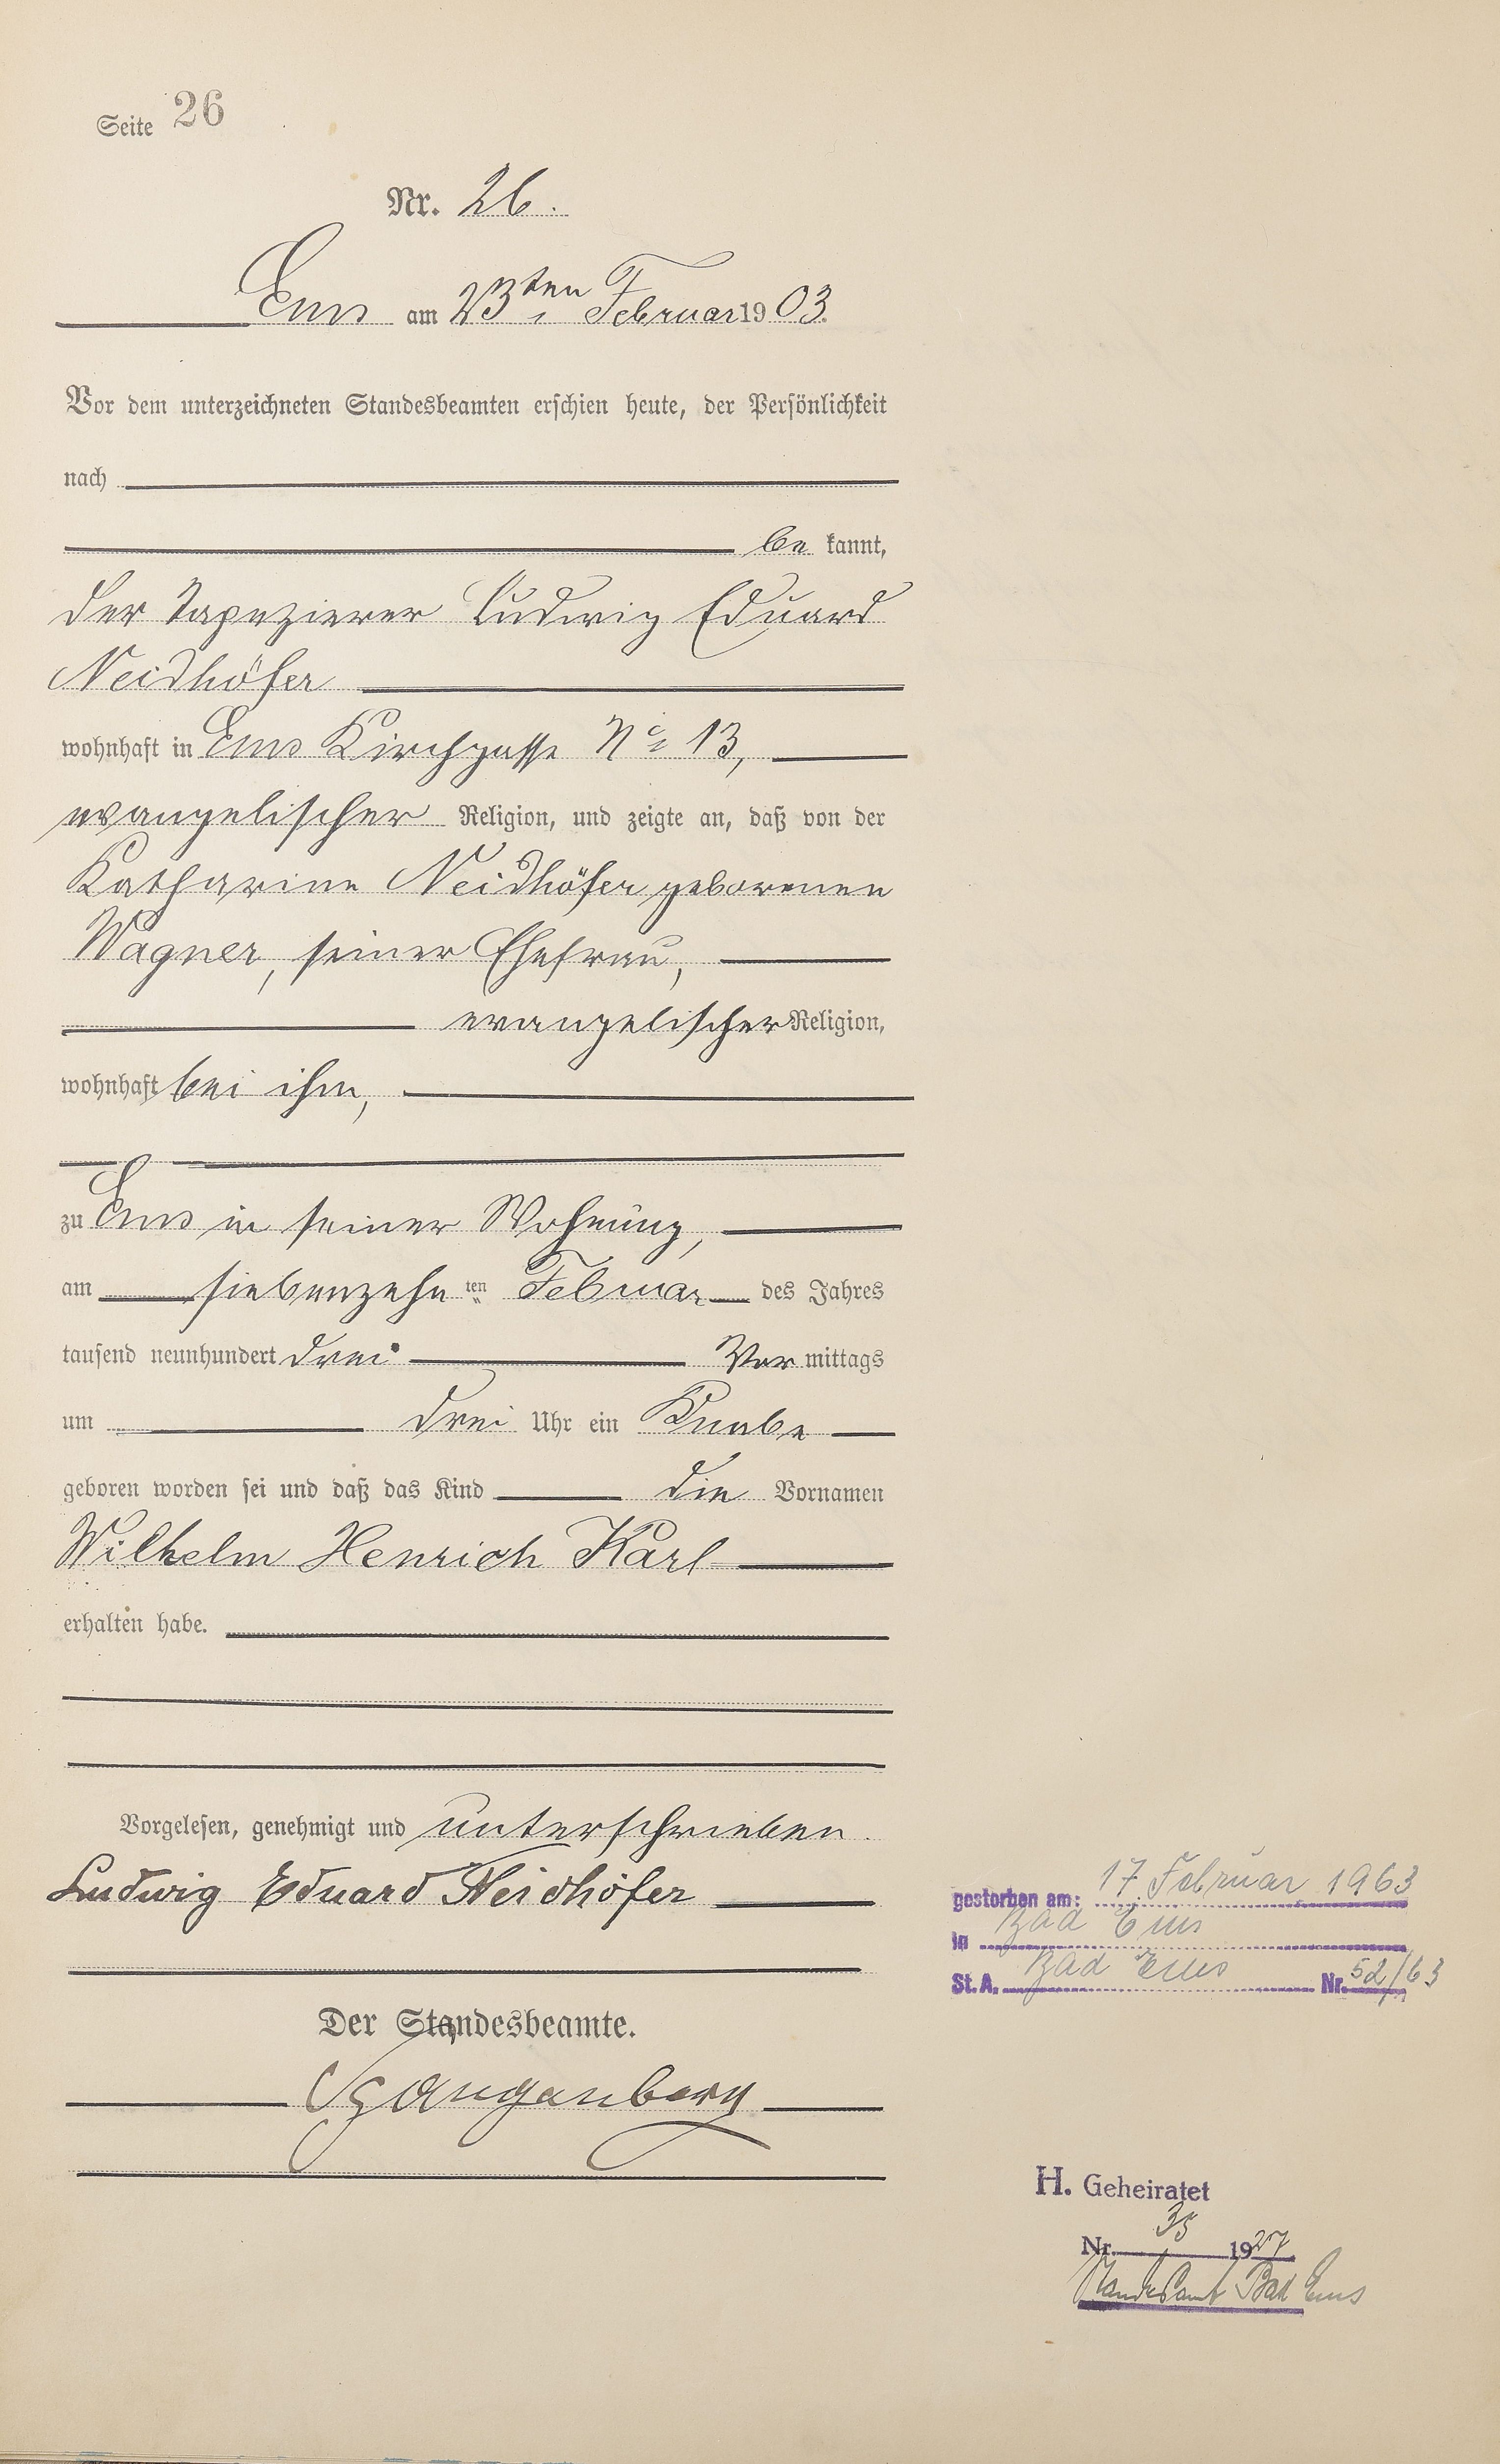 Seite 26
Nr. 26.
Ems am 23ten Februar 1903.
Vor dem unterzeichneten Standesbeamten erschien heute, der Persönlichkeit
nach
be kannt,
der Tapezierer Ludwig Eduard
Neidhöfer
wohnhaft in Ems Kirchgasse No 13,
evangelischer Religion, und zeigte an, daß von der
Katharine Neidhöfer geborenen
Wagner, seiner Ehefrau,
evangelischer Religion,
wohnhaft bei ihm,
zu Ems in seiner Wohnung,
am siebenzehn ten Februar des Jahres
tausend neunhundert drei Vor mittags
um drei Uhr ein Knabe
geboren worden sei und daß das Kind die Vornamen
Wilhelm Henrich Karl
erhalten habe.
Vorgelesen, genehmigt und unterschrieben.
Ludwig Eduard Neidhöfer
Der Standesbeamte.
gestorben am: 17. Februar 1963
in Bad Ems
St. A. Bad Ems Nr. 52/63
H. Geheiratet
Nr. 35 1927
Standesamt Bad Ems